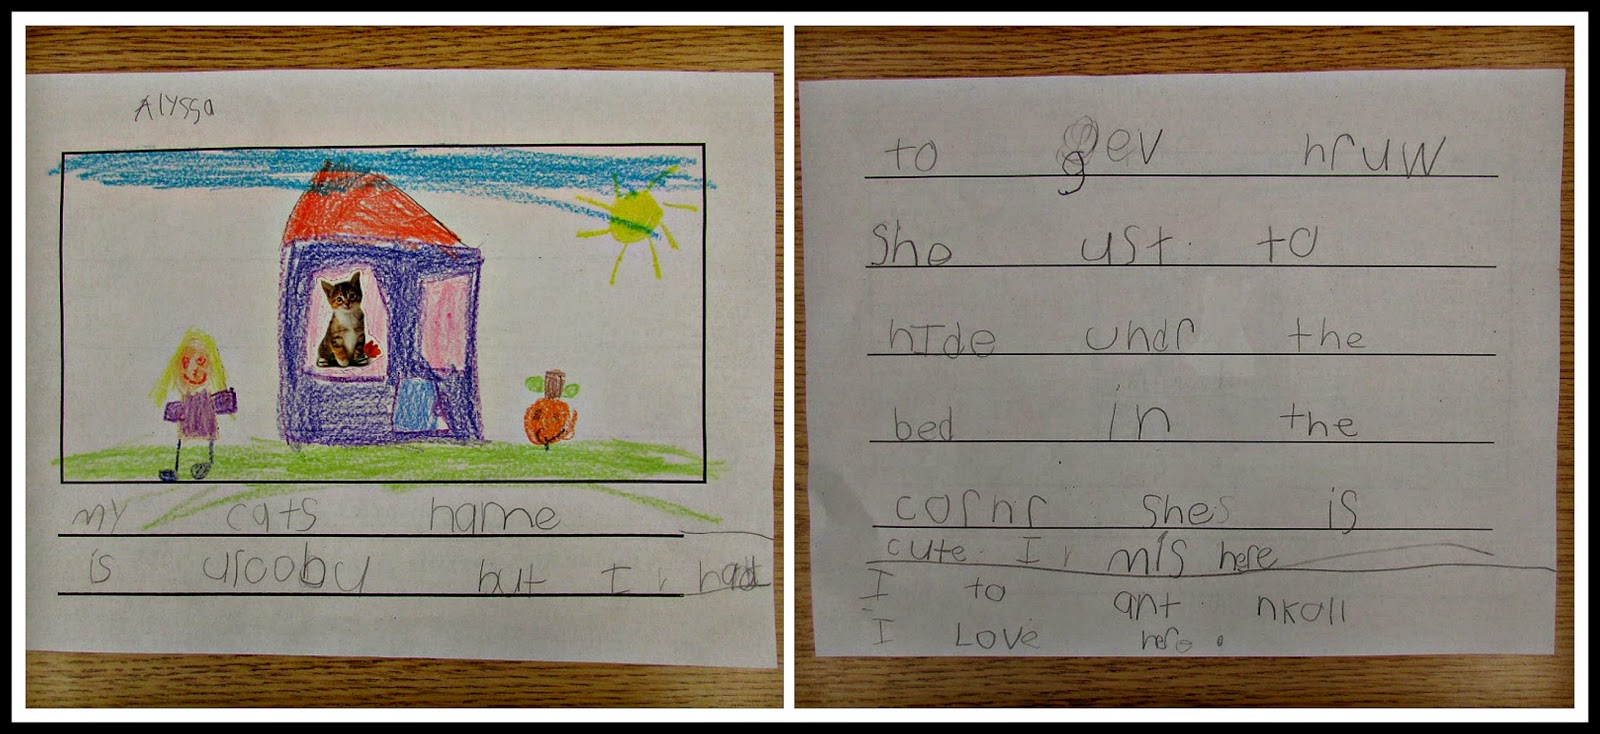 Alyssa
my cats name
is urooby but I had
to gev hruw
She ust to
hide undr the
bed in the
cornr shes is
cute. I mis here
I to ant nkoll
I Love here.